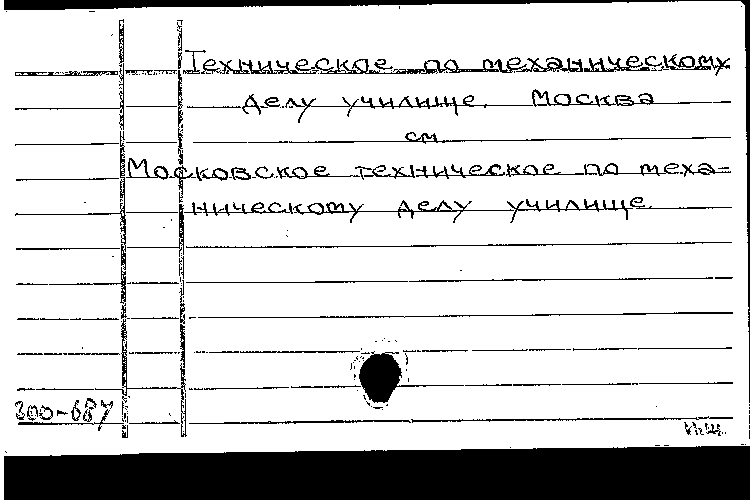 Техническое по механическому
делу училище. Москва
см.
Московское техническое по меха=
ническому делу училище.
300-687